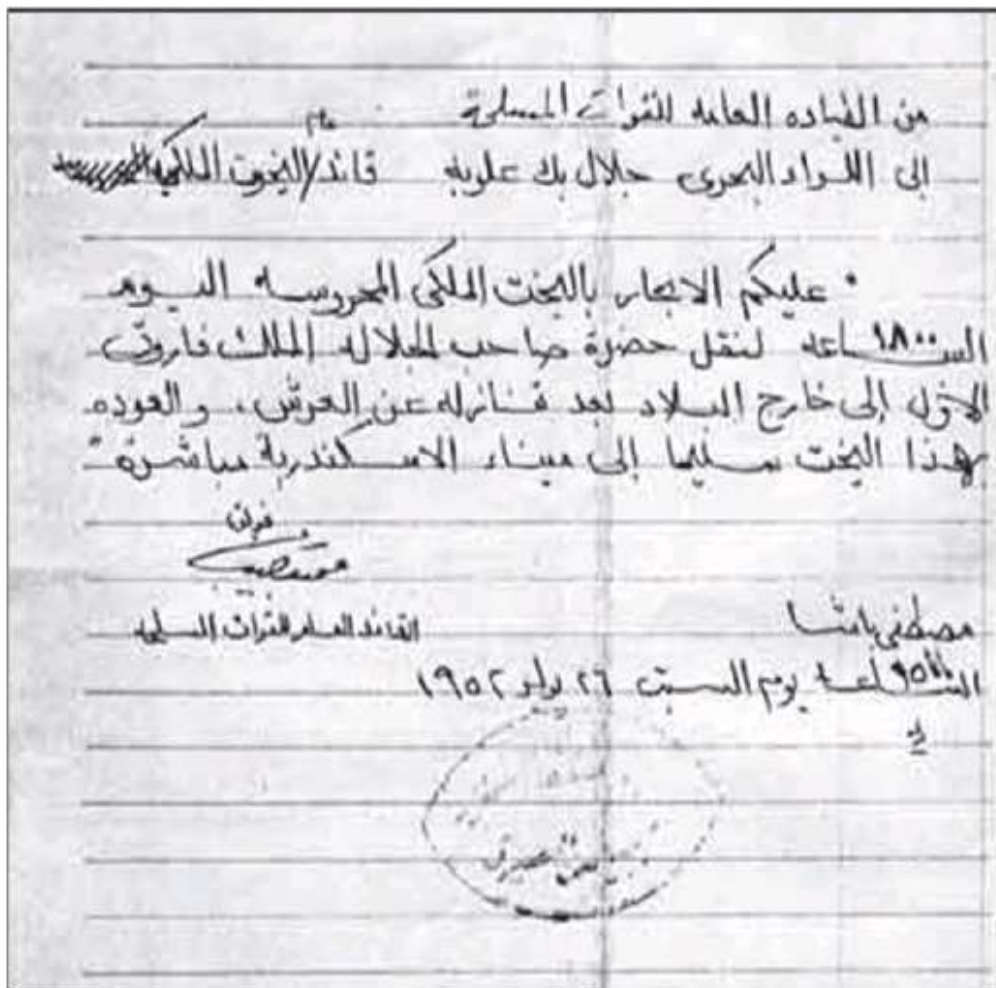 من القياده العامه للقوات المسلحة
إلى اللواء البحرى جلال بك علوبه قائد عام اليخوت الملكية
" عليكم الابحار باليخت الملكى المحروسه اليوم
الساعه ١٨٠٠ لنقل حضرة صاحب الجلاله الملك فاروق
الأول إلى خارج البلاد بعد تنازله عن العرش، والعوده
بهذا اليخت سليما إلى ميناء الاسكندرية مباشرة "
محمد نجيب
القائد العام للقوات المسلحه
مصطفى باشا
الساعة يوم السبت ٢٦ يوليو ١٩٥٢